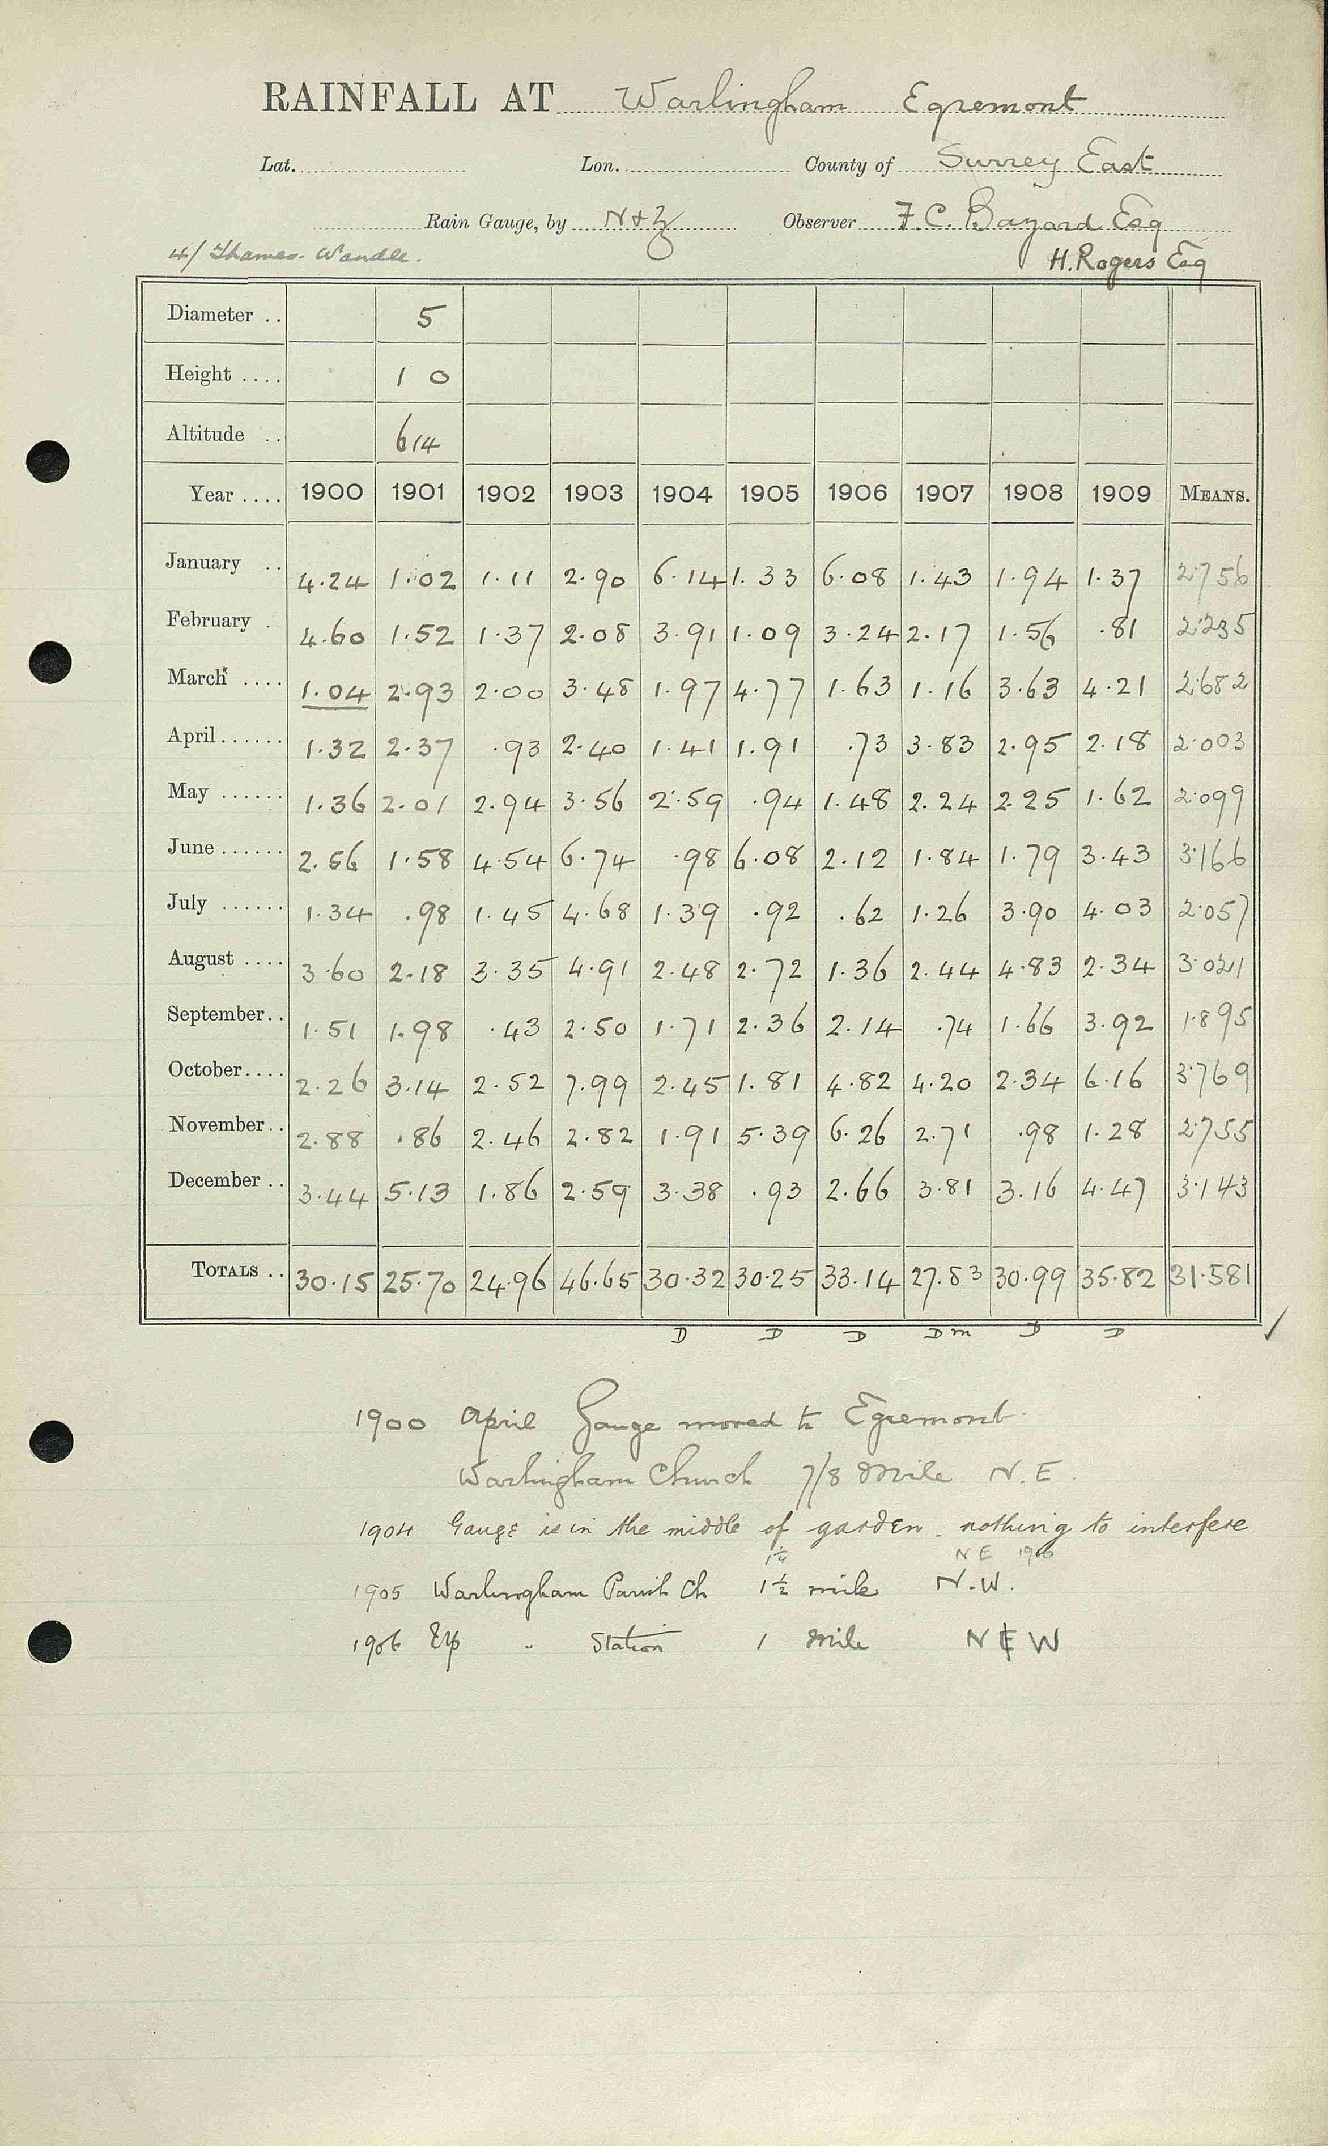 RAINFALL AT Warlingham Egremont
Lat. Lon. County of Surrey East
Rain Gauge, by N & Z Observer F. C. Bayard Esq
4/ Thames. Wandle. H. Rogers Esq
Diameter .. 5
Height .... 1 0
Altitude .. 614
Year .... 1900 1901 1902 1903 1904 1905 1906 1907 1908 1909 MEANS.
January .. 4.24 1.02 1.11 2.90 6.14 1.33 6.08 1.43 1.94 1.37 2.756
February . 4.60 1.52 1.37 2.08 3.91 1.09 3.24 2.17 1.56 .81 2.235
March .... 1.04 2.93 2.00 3.48 1.97 4.77 1.63 1.16 3.63 4.21 2.682
April...... 1.32 2.37 .93 2.40 1.41 1.91 .73 3.83 2.95 2.18 2.003
May ...... 1.36 2.01 2.94 3.56 2.59 .94 1.48 2.24 2.25 1.62 2.099
June...... 2.56 1.58 4.54 6.74 .98 6.08 2.12 1.84 1.79 3.43 3.166
July ...... 1.34 .98 1.45 4.68 1.39 .92 .62 1.26 3.90 4.03 2.057
August .... 3.60 2.18 3.35 4.91 2.48 2.72 1.36 2.44 4.83 2.34 3.021
September.. 1.51 1.98 .43 2.50 1.71 2.36 2.14 .74 1.66 3.92 1.895
October.... 2.26 3.14 2.52 7.99 2.45 1.81 4.82 4.20 2.34 6.16 3.769
November.. 2.88 .86 2.46 2.82 1.91 5.39 6.26 2.71 .98 1.28 2.755
December .. 3.44 5.13 1.86 2.59 3.38 .93 2.66 3.81 3.16 4.47 3.143
TOTALS .. 30.15 25.70 24.96 46.65 30.32 30.25 33.14 27.83 30.99 35.82 31.581
D D D Dm D D
1900 April Gauge moved to Egremont
Warlingham Church 7/8 Mile N. E.
1904 Gauge is in the middle of garden. nothing to interfere
1¼ NE 1906
1905 Warlingham Parish Ch 1½ mile N.W.
1906 Up " Station 1 Mile N E W